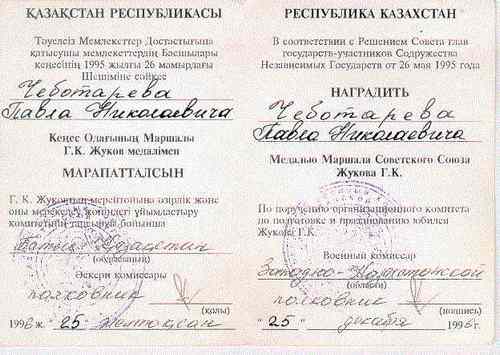 ҚАЗАҚСТАН РЕСПУБЛИКАСЫ
Тәуелсіз Мемлекеттер Достастығына
қатысушы мемлекеттердің Басшылары
кеңесінің 1995 жылғы 26 мамырдағы
Шешіміне сәйкес
Чеботарева
Павла Николаевича
Кеңес Одағының Маршалы
Г.К. Жуков медалімен
МАРАПАТТАЛСЫН
Г. К. Жуковтың мерейтойына әзірлік және
оны мерекелеу жөніндегі ұйымдастыру
комитетінің ұйғаруы бойынша
Батыс Қазақстан
(облысының)
Әскери комиссары
полковник
(қолы)
199 ж. "25" желтоқсан
РЕСПУБЛИКА КАЗАХСТАН
В соответствии с Решением Совета глав
государств-участников Содружества
Независимых Государств от 26 мая 1995 года
НАГРАДИТЬ
Чеботарева
Павла Николаевича
Медалью Маршала Советского Союза
Жукова Г.К.
По поручению организационного комитета
по подготовке и празднованию юбилея
Жукова Г.К.
Военный комиссар
Западно-Казахстанской
(области)
полковник
(подпись)
"25" декабря 199 г.